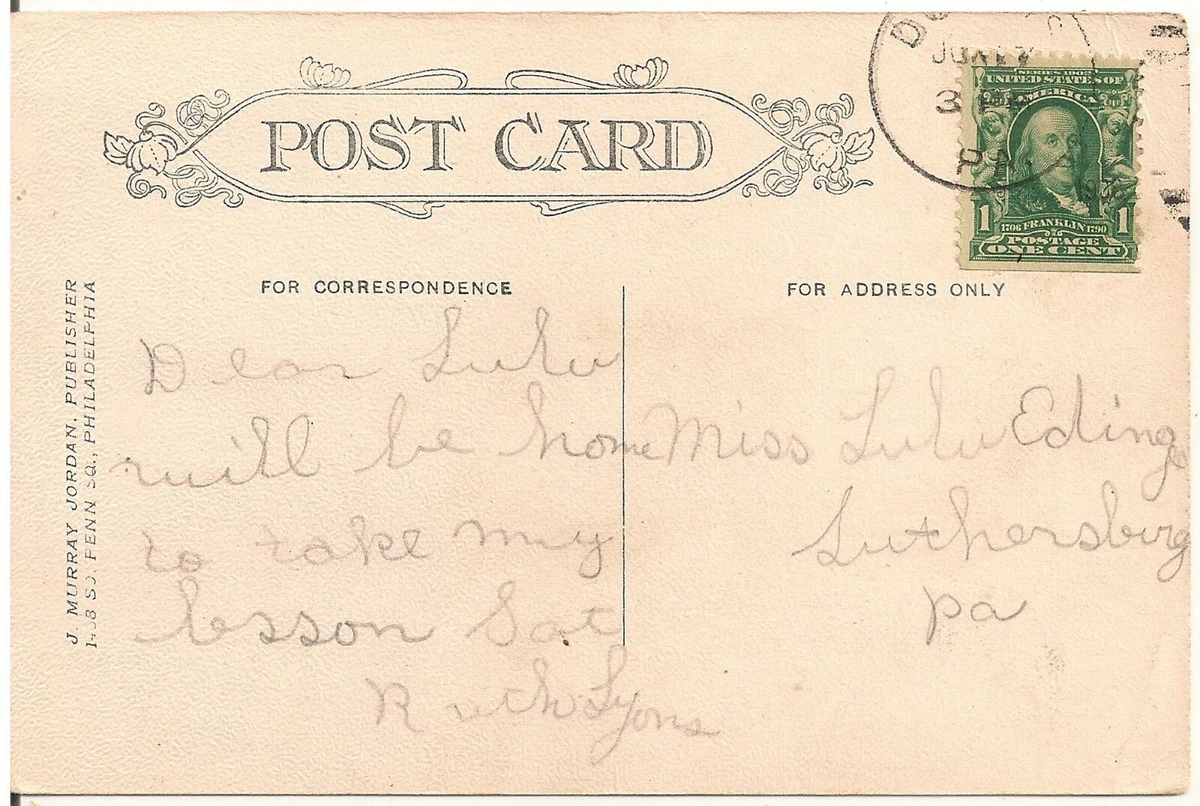 POST CARD
JUN 17
3
PA.
SERIES 1902
UNITED STATES OF
AMERICA
1 1
1706 FRANKLIN 1790
POSTAGE
ONE CENT
J. MURRAY JORDAN, PUBLISHER
SO. PENN SQ., PHILADELPHIA
FOR CORRESPONDENCE
Dear Lulu
will be home
to take my
lesson Sat
Ruth Lyons
FOR ADDRESS ONLY
Miss Lulu
Luthersburg
Pa